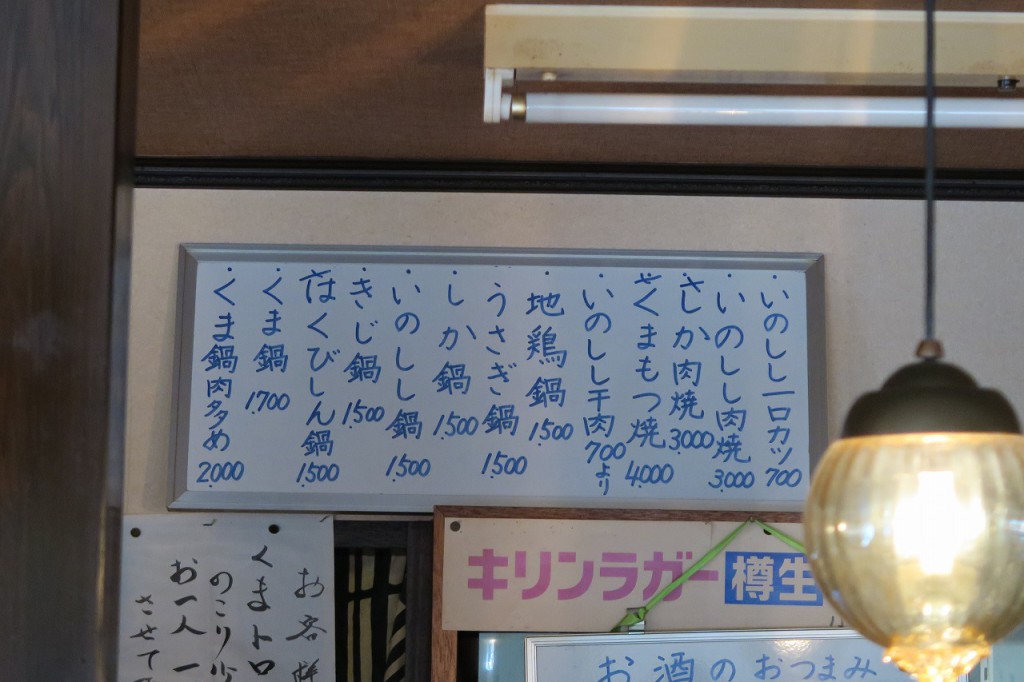 ・いのしし一口カツ 700
・いのしし肉焼 3,000
・しか肉焼 3,000
・くまもつ焼 4,000
・いのしし干肉 700より
・地鶏鍋 1,500
・うさぎ鍋 1,500
・しか鍋 1,500
・いのしし鍋 1,500
・きじ鍋 1,500
・はくびしん鍋 1,500
・くま鍋 1,700
・くま鍋肉多め 2,000
お客様
くまトロ
のこり少
お一人一
させて
キリンラガー 樽生
お酒のおつまみ